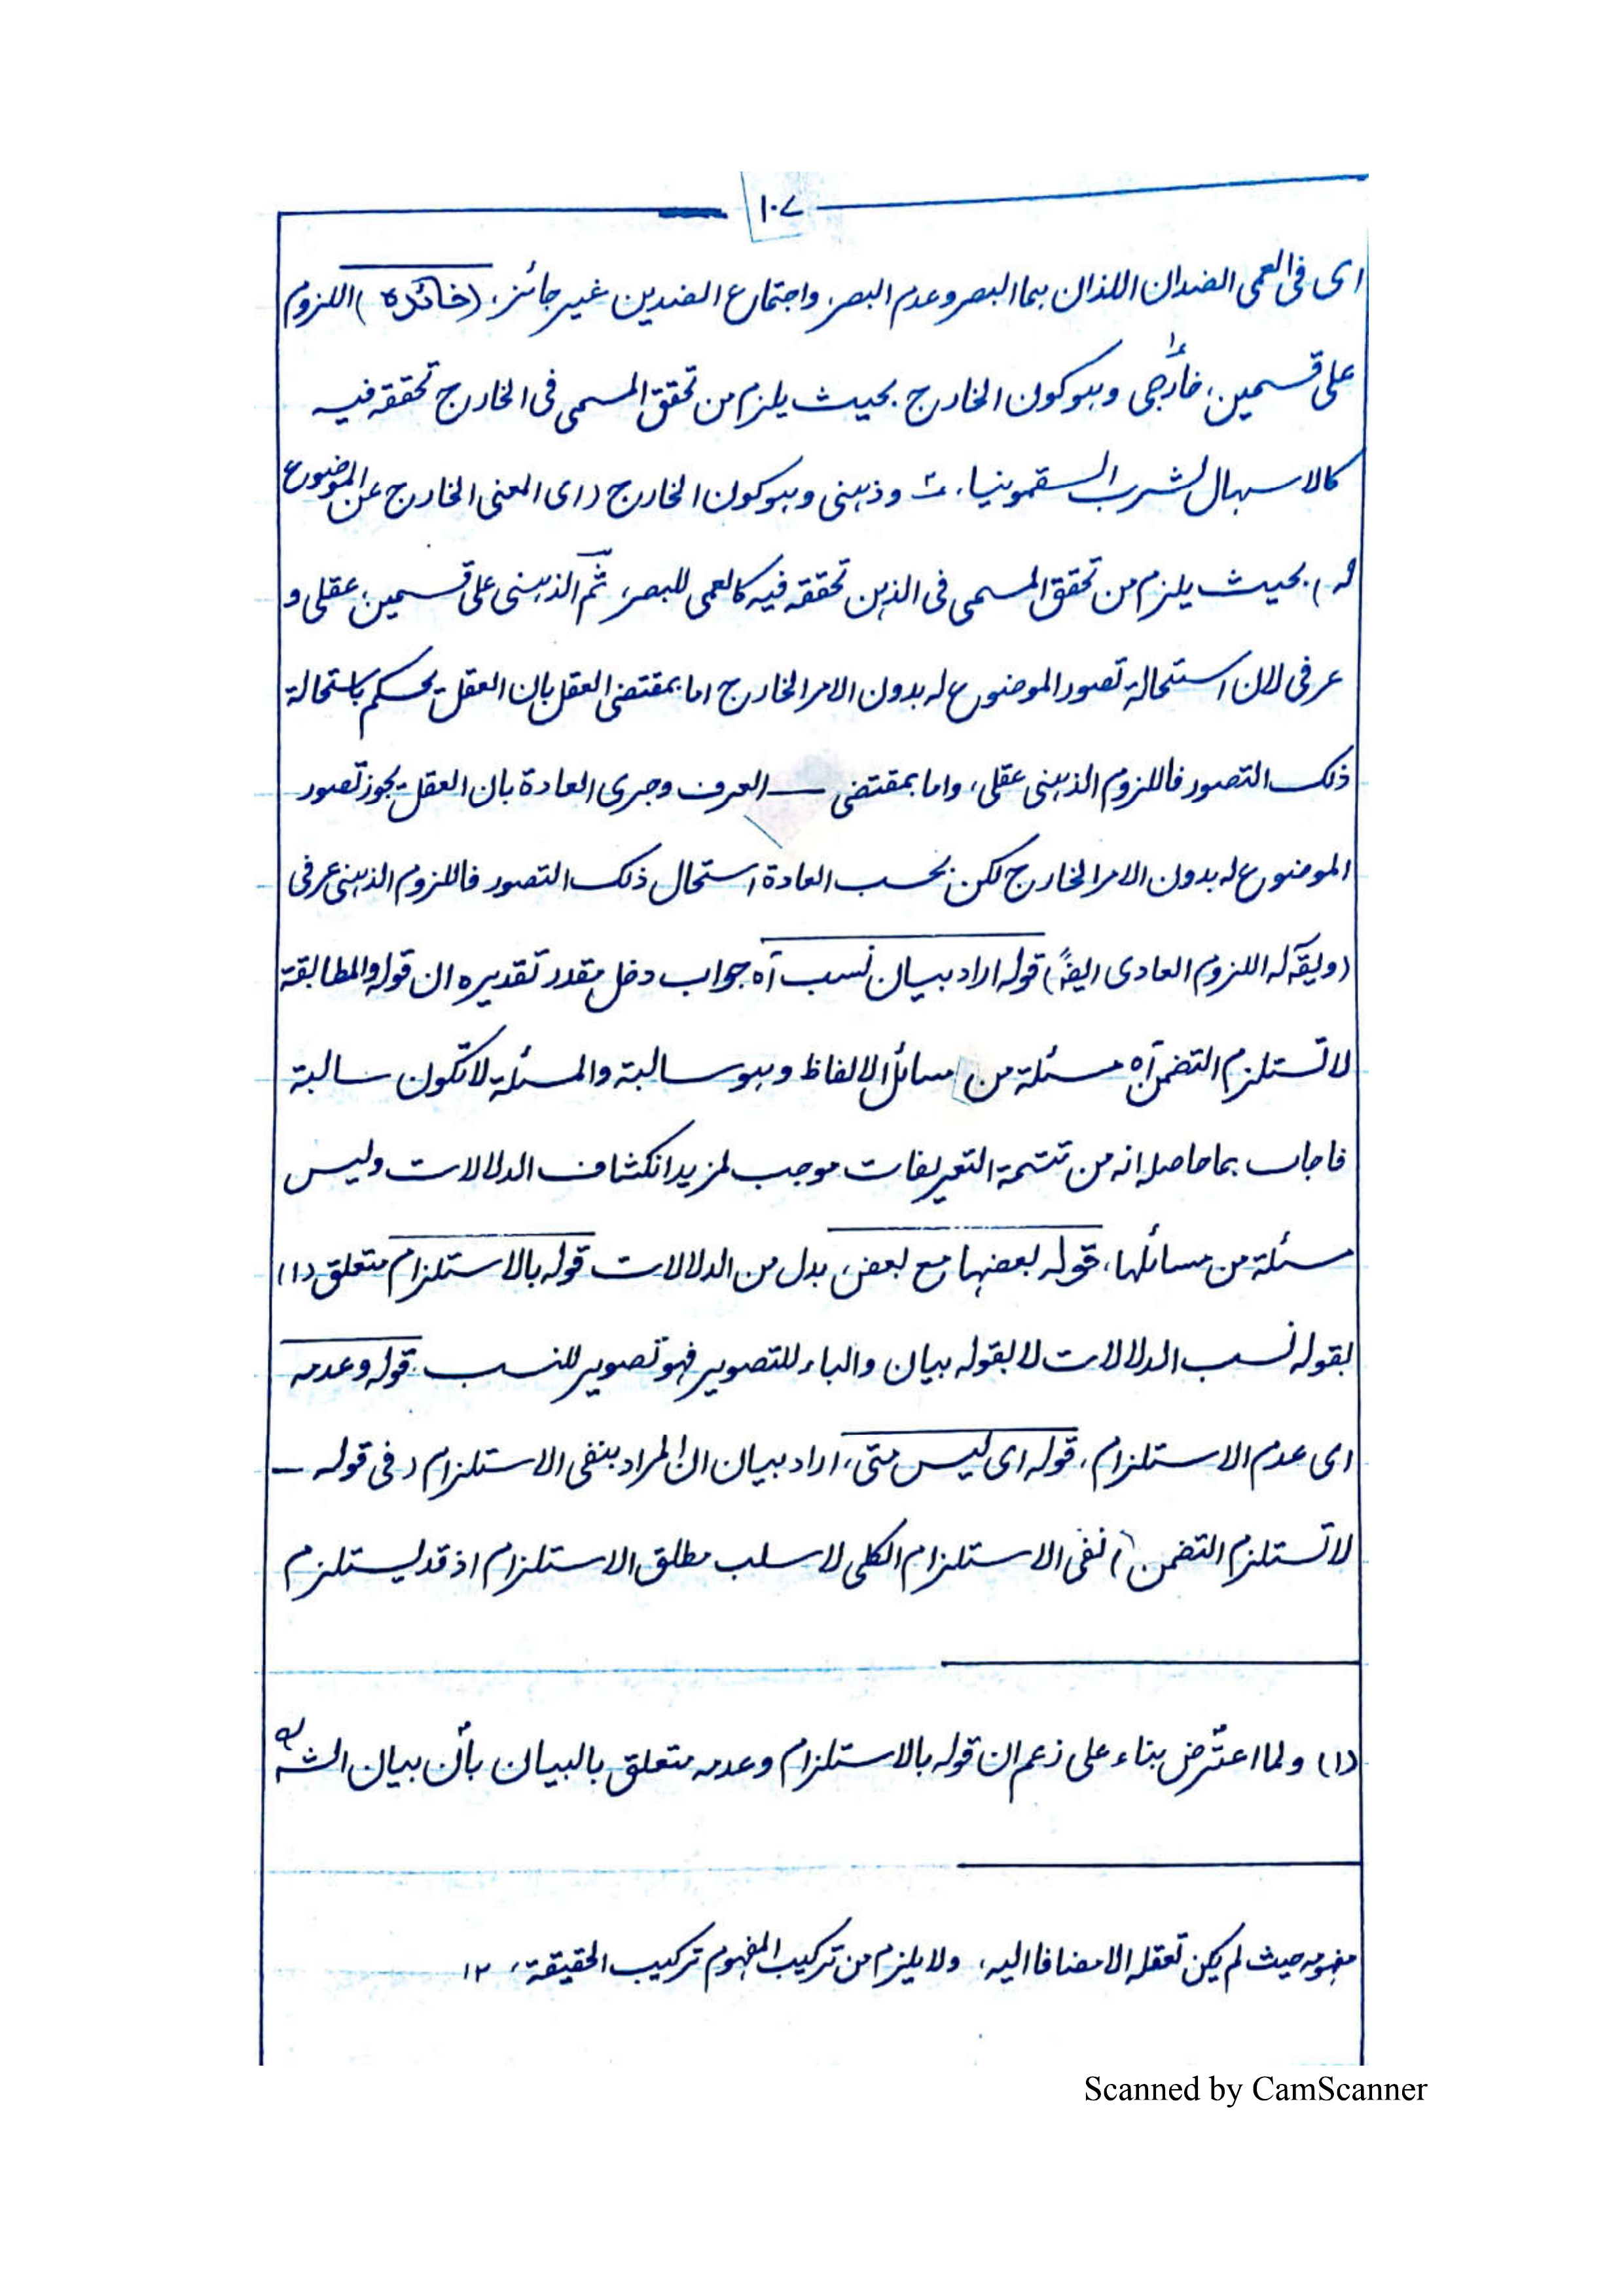 ١٠٧
اى فى العمى الضدان اللذان هما البصر وعدم البصر، واجتماع الضدين غير جائز، (فائدة) اللزوم
على قسمين، خارجى وهو كون الخارج بحيث يلزم من تحقق المسمى فى الخارج تحققه فيه
كالاسهال لشرب السقمونيا، وذهنى وهو كون الخارج (اى المعنى الخارج عن الموضوع
له) بحيث يلزم من تحقق المسمى فى الذهن تحققه فيه كالعمى للبصر، ثم الذهنى على قسمين، عقلى و
عرفى لان استحالة تصور الموضوع له بدون الامر الخارج اما بمقتضى العقل بان العقل يحكم باستحالة
ذلك التصور فاللزوم الذهنى عقلى، واما بمقتضى — العرف وجرى العادة بان العقل يجوز تصور
الموضوع له بدون الامر الخارج لكن بحسب العادة استحال ذلك التصور فاللزوم الذهنى عرفى
(ويقآ له اللزوم العادى ايضًا) قوله اراد بيان نسب آه جواب دخل مقدر تقديره ان قوله والمطابقة
لا تستلزم التضمن آه مسئلة من مسائل الالفاظ وهو سالبة والمسئلة لا تكون سالبة
فاجاب بما حاصله انه من تتمة التعريفات موجب لمزيد انكشاف الدلالات وليس
مسئلة من مسائلها، قوله بعضها مع بعض، بدل من الدلالات قوله بالاستلزام متعلق (١)
بقوله نسب الدلالات لا بقوله بيان والباء للتصوير فهو تصوير للنسب، قوله وعدمه
اى عدم الاستلزام، قوله اى ليس متى، اراد بيان ان المراد بنفى الاستلزام (فى قوله —
لا تستلزم التضمن) نفى الاستلزام الكلى لا سلب مطلق الاستلزام اذ قد يستلزم
(١) ولما اعتُرض بناء على زعم ان قوله بالاستلزام وعدمه متعلق بالبيان بأن بيان الشه
مفهومه حيث لم يكن تعقله الا مضافا اليه، ولا يلزم من تركيب المفهوم تركيب الحقيقة، ١٢
Scanned by CamScanner